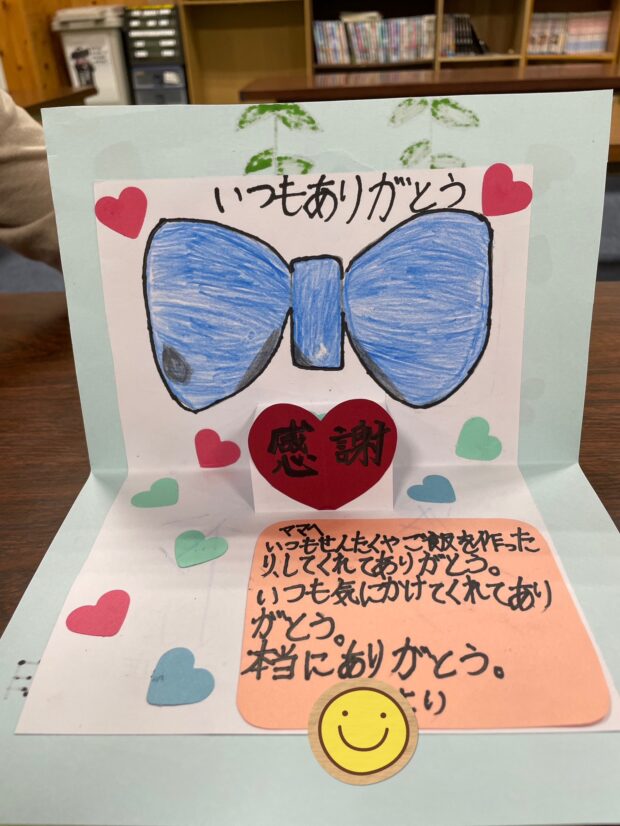 いつもありがとう
感謝
ママへ
いつもせんたくやご飯を作った
り、してくれてありがとう。
いつも気にかけてくれてあり
がとう。
本当にありがとう。
より